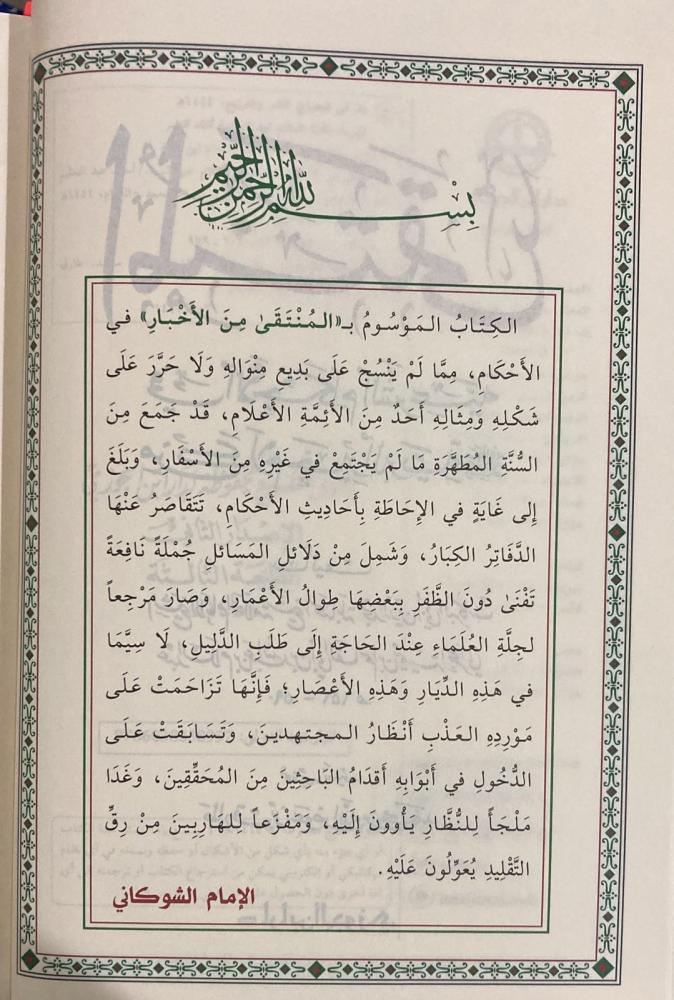 بِسْمِ اللهِ الرَّحْمٰنِ الرَّحِيمِ
الكِتَابُ المَوْسُومُ بـ«المُنْتَقَىٰ مِنَ الأَخْبَارِ» في
الأَحْكَامِ، مِمَّا لَمْ يَنْسُجْ عَلَى بَدِيعِ مِنْوَالِهِ وَلَا حَرَّرَ عَلَى
شَكْلِهِ وَمِثَالِهِ أَحَدٌ مِنَ الأَئِمَّةِ الأَعْلَامِ، قَدْ جَمَعَ مِنَ
السُّنَّةِ المُطَهَّرَةِ مَا لَمْ يَجْتَمِعْ في غَيْرِهِ مِنَ الأَسْفَارِ، وَبَلَغَ
إِلى غَايَةٍ في الإِحَاطَةِ بِأَحَادِيثِ الأَحْكَامِ، تَتَقَاصَرُ عَنْهَا
الدَّفَاتِرُ الكِبَارُ، وَشَمِلَ مِنْ دَلَائلِ المَسَائلِ جُمْلَةً نَافِعَةً
تَفْنَىٰ دُونَ الظَّفَرِ بِبَعْضِهَا طِوالُ الأَعْمَارِ، وَصَارَ مَرْجِعاً
لِجِلَّةِ العُلَمَاءِ عِنْدَ الحَاجَةِ إِلَى طَلَبِ الدَّلِيلِ، لَا سِيَّمَا
في هَذِهِ الدِّيَارِ وَهَذِهِ الأَعْصَارِ؛ فَإِنَّهَا تَزَاحَمَتْ عَلَى
مَوْرِدِهِ العَذْبِ أَنْظَارُ المجتهدينَ، وَتَسَابَقَتْ عَلَى
الدُّخُولِ في أَبْوَابِهِ أَقدَامُ البَاحِثِينَ مِنَ المُحَقِّقِينَ، وَغَدَا
مَلْجَأً لِلنُّظَّارِ يَأْوونَ إِلَيْهِ، وَمَفْزَعاً لِلهَارِبِينَ مِنْ رِقِّ
التَّقْلِيدِ يُعَوِّلُونَ عَلَيْهِ.
الإمام الشوكاني